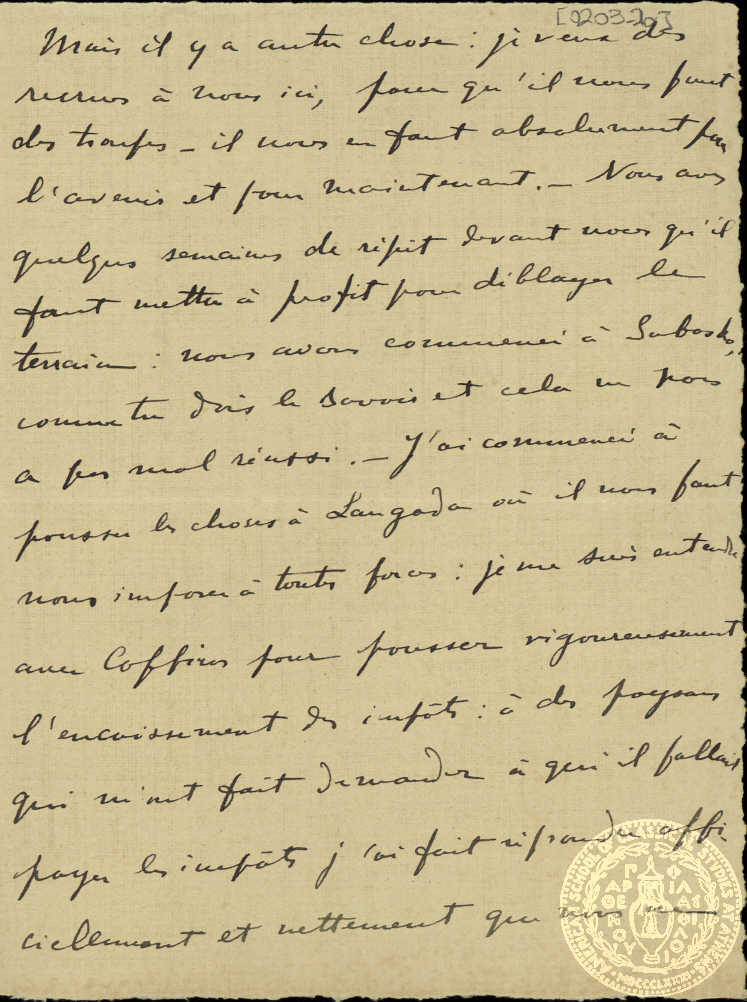 [2203-20]
Mais il y a autre chose : je veux des
recrues à nous ici, parce qu'il nous faut
des troupes – il nous en faut absolument pour
l'avenir et pour maintenant. – Nous avons
quelques semaines de répit devant nous qu'il
faut mettre à profit pour déblayer le
terrain : nous avons commencé à
comme tu dois le savoir et cela ne nous
a pas mal réussi. – J'ai commencé à
pousser les choses à Langada où il nous faut
nous imposer à toutes forces : je me suis entendu
avec Coffinas pour pousser vigoureusement
l'encaissement des impôts : à des paysans
qui m'ont fait demander à qui il fallait
payer les impôts j'ai fait répondre offi-
ciellement et nettement que nous
AMERICAN SCHOOL OF CLASSICAL STUDIES AT ATHENS
ΠΑΡΘΕΝΟΥ ΦΙΛΑΣ ΦΙΛΟΙ
MDCCCLXXXI